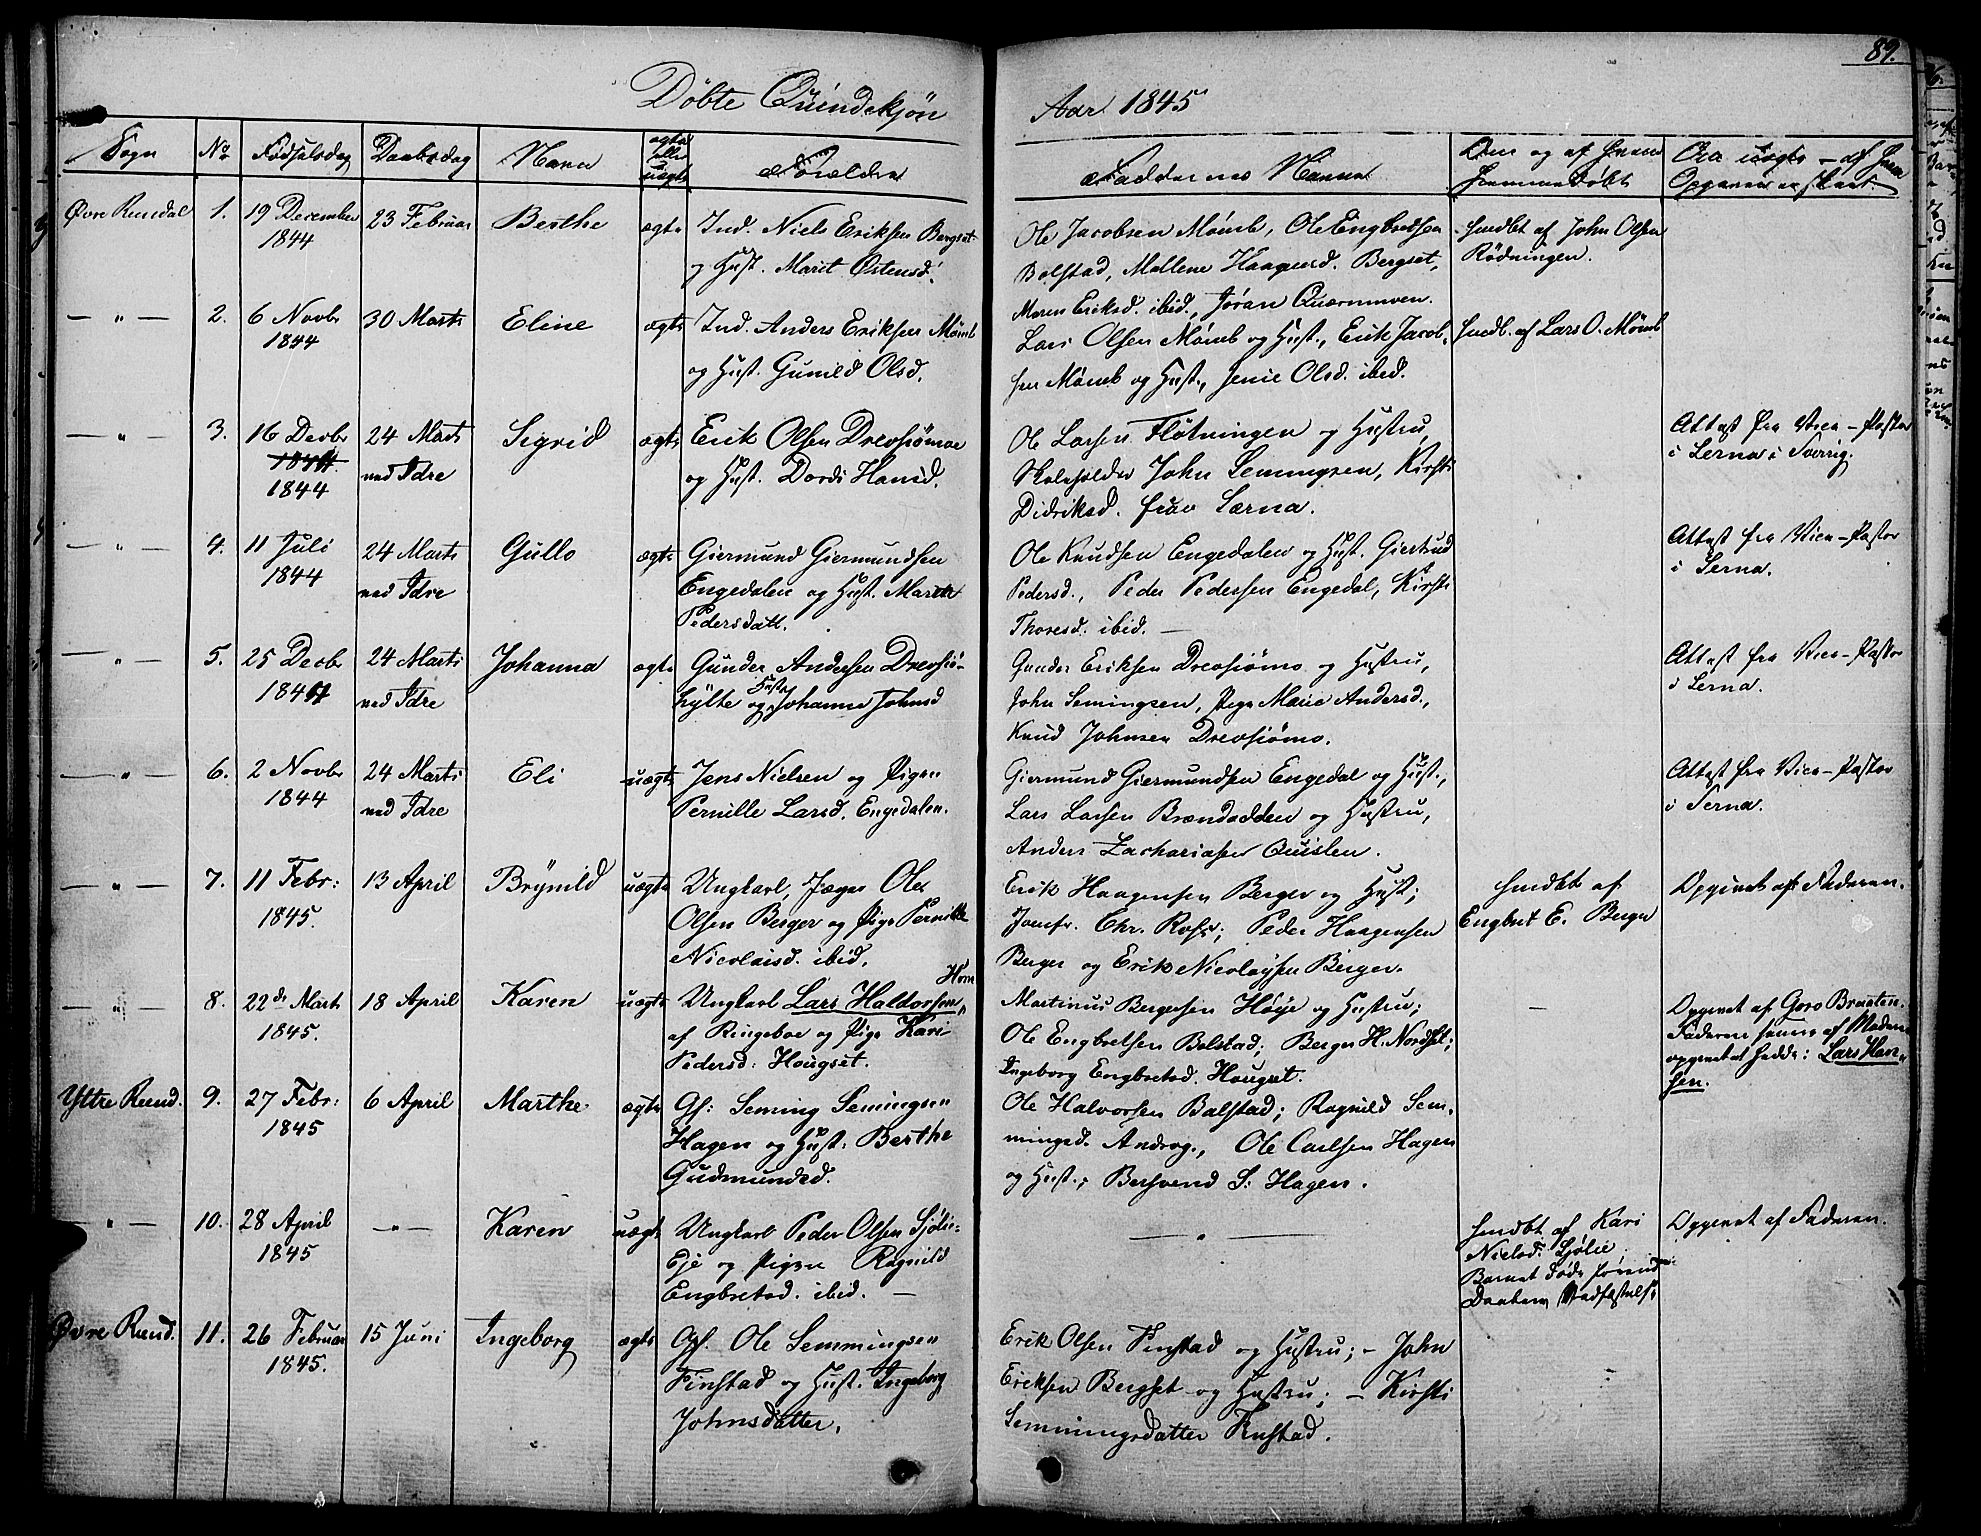 89.
Döbte Quindekjøn Aar 1845
Sogn No Fødselsdag Daabsdag Navn ægte eller uægte Forældre Faddernes Navne Om og af hvem hjemmedøbt Om uægte - af hvem Opgaven er skeet.
Øvre Rendal 1. 19 December 23 Februar Berthe ægte Ind. Niels Eriksen Bergset Ole Jacobsen Mømb, Ole Engbretsen hmdbt af John Olsen
1844 og Hust. Marit Ostensd: Bolstad, Mallene Haagensd. Bergset, Rödningen.
Maren Eriksd. ibid., Jöran Quærnmoen.
— " — 2. 6 Novbr 30 Marts Eline ægte Ind. Anders Eriksen Mømb Lars Olsen Mømb og Hust., Erik Jacob- hmdb. af Lars O. Mømb
1844 og Hust. Gunild Olsd. sen Mømb og Hust., Jenie Olsd. ibid.
— " — 3. 16 Decbr 24 Marts Sigrid ægte Erik Olsen Drevsiömoe Ole Larsen Flötningen og Hustru, Attest fra Vice-Pastor
1844. ved Idre og Hust. Dordi Hansd. Skoleholder John Semingsen, Kirsti i Serna i Sverrig.
1844 Didriksd. fra Særna.
— " — 4. 11 Juli 24 Marts Gullo ægte Giermund Giermundsen Ole Knudsen Engedalen og Hust. Giertrud Attest fra Vice-Pastor
1844 ved Idre Engedalen og Hust. Marthe Pedersd., Peder Pedersen Engedal, Kirsti i Serna.
Pedersdatt. Thoresd. ibid. —
— " — 5. 25 Decbr 24 Marts Johanna ægte Gunder Andersen Drevsiö- Gunder Eriksen Drevsiömo og Hustru, Attest fra Vice-Pastor
1844 ved Idre hylte og Hust. Johanne Johnsd John Semingsen, Pige Marie Andersd., i Serna.
Knud Johnsen Drevsiömo.
— " — 6. 2 Novbr 24 Marts Eli uægte Jens Nielsen og Pigen Giermund Giermundsen Engedal og Hust., Attest fra Vice-Pastor
1844 ved Idre Pernille Larsd. Engedalen. Lars Larsen Brændodden og Hustru, i Serna.
Anders Zachariasen Quislen.
— " — 7. 11 Febr: 13 April Brynild uægte Ungkarl, Jæger Ole Erik Haagensen Berger og Hust; hmdbt af Opgivet af Faderen.
1845. Olsen Berger og Pige Pernille Jomfr. Chr. Ross; Peder Haagensen Engbret E. Berger
Nicolaisd. ibid. Berger og Erik Nicolaysen Berger.
— " — 8. 22de Marts 18 April Karen uægte Ungkarl Lars Haldorsen Martinus Bergersen Höye og Hustru; — Opgivet af Goro Braaten.
1845. af Ringeboe og Pige Kari Ole Engbretsen Bolstad; Berger H. Nordset; Faderen senere af Moderen
Pedersd: Hougset. Ingeborg Engbretsd. Hougset. opgivet hedde: Lars Han-
sen.
Yttre Rend. 9. 27 Febr: 6 April Marthe ægte Gf: Seming Semingsen Ole Halvorsen Balstad; Ragnild Sem-
1845 Hagen og Hust: Berthe mingsd. Androg., Ole Carlsen Hagen
Gudmundsd. og Hust.; Bersvend S: Hagen.
— " — 10. 28 April — " — Karen uægte Ungkarl Peder Olsen Sjölie- — " — hmdbt af Kari Opgivet af Faderen.
1845 Eje og Pigen Ragnild Nielsd: Sjölie
Engbretsd. ibid. — Barnet døde förend
Daabens Stadfæstelse
Øvre Rend. 11. 26 Februar 15 Juni Ingeborg ægte Gf. Ole Semmingsen Erik Olsen Finstad og Hustru; - John
1845. Finstad og Hust. Ingeborg Eriksen Bergset og Hustru; - Kirsti
Johnsdatter. Semmingsdatter Finstad.